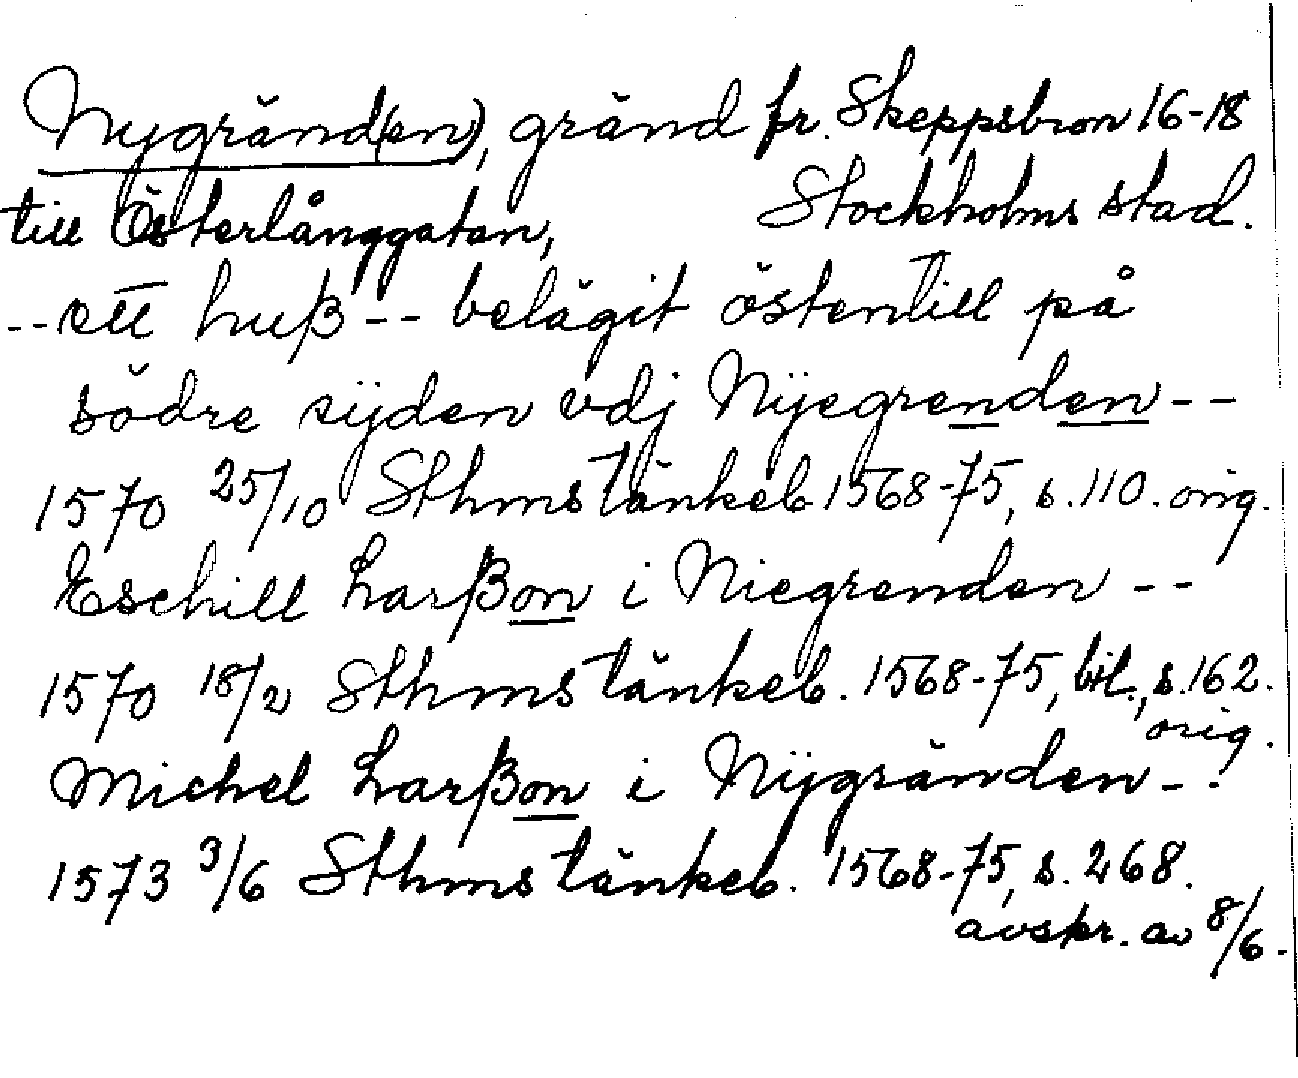 Nygränd(en), gränd fr. Skeppsbron 16-18
till Österlånggatan, Stockholms stad.
-- ett huß -- belägit östentill på
södre sijden vdj Nijegrenden --
1570 25/10 Sthms tänkeb. 1568-75, s. 110. orig.
Eschill Larßon i Niegrenden --
1570 18/2 Sthms tänkeb. 1568-75, bil., s. 162.
orig.
Michel Larßon i Nijgränden --
1573 3/6 Sthms tänkeb. 1568-75, s. 268.
avskr. av 8/6.